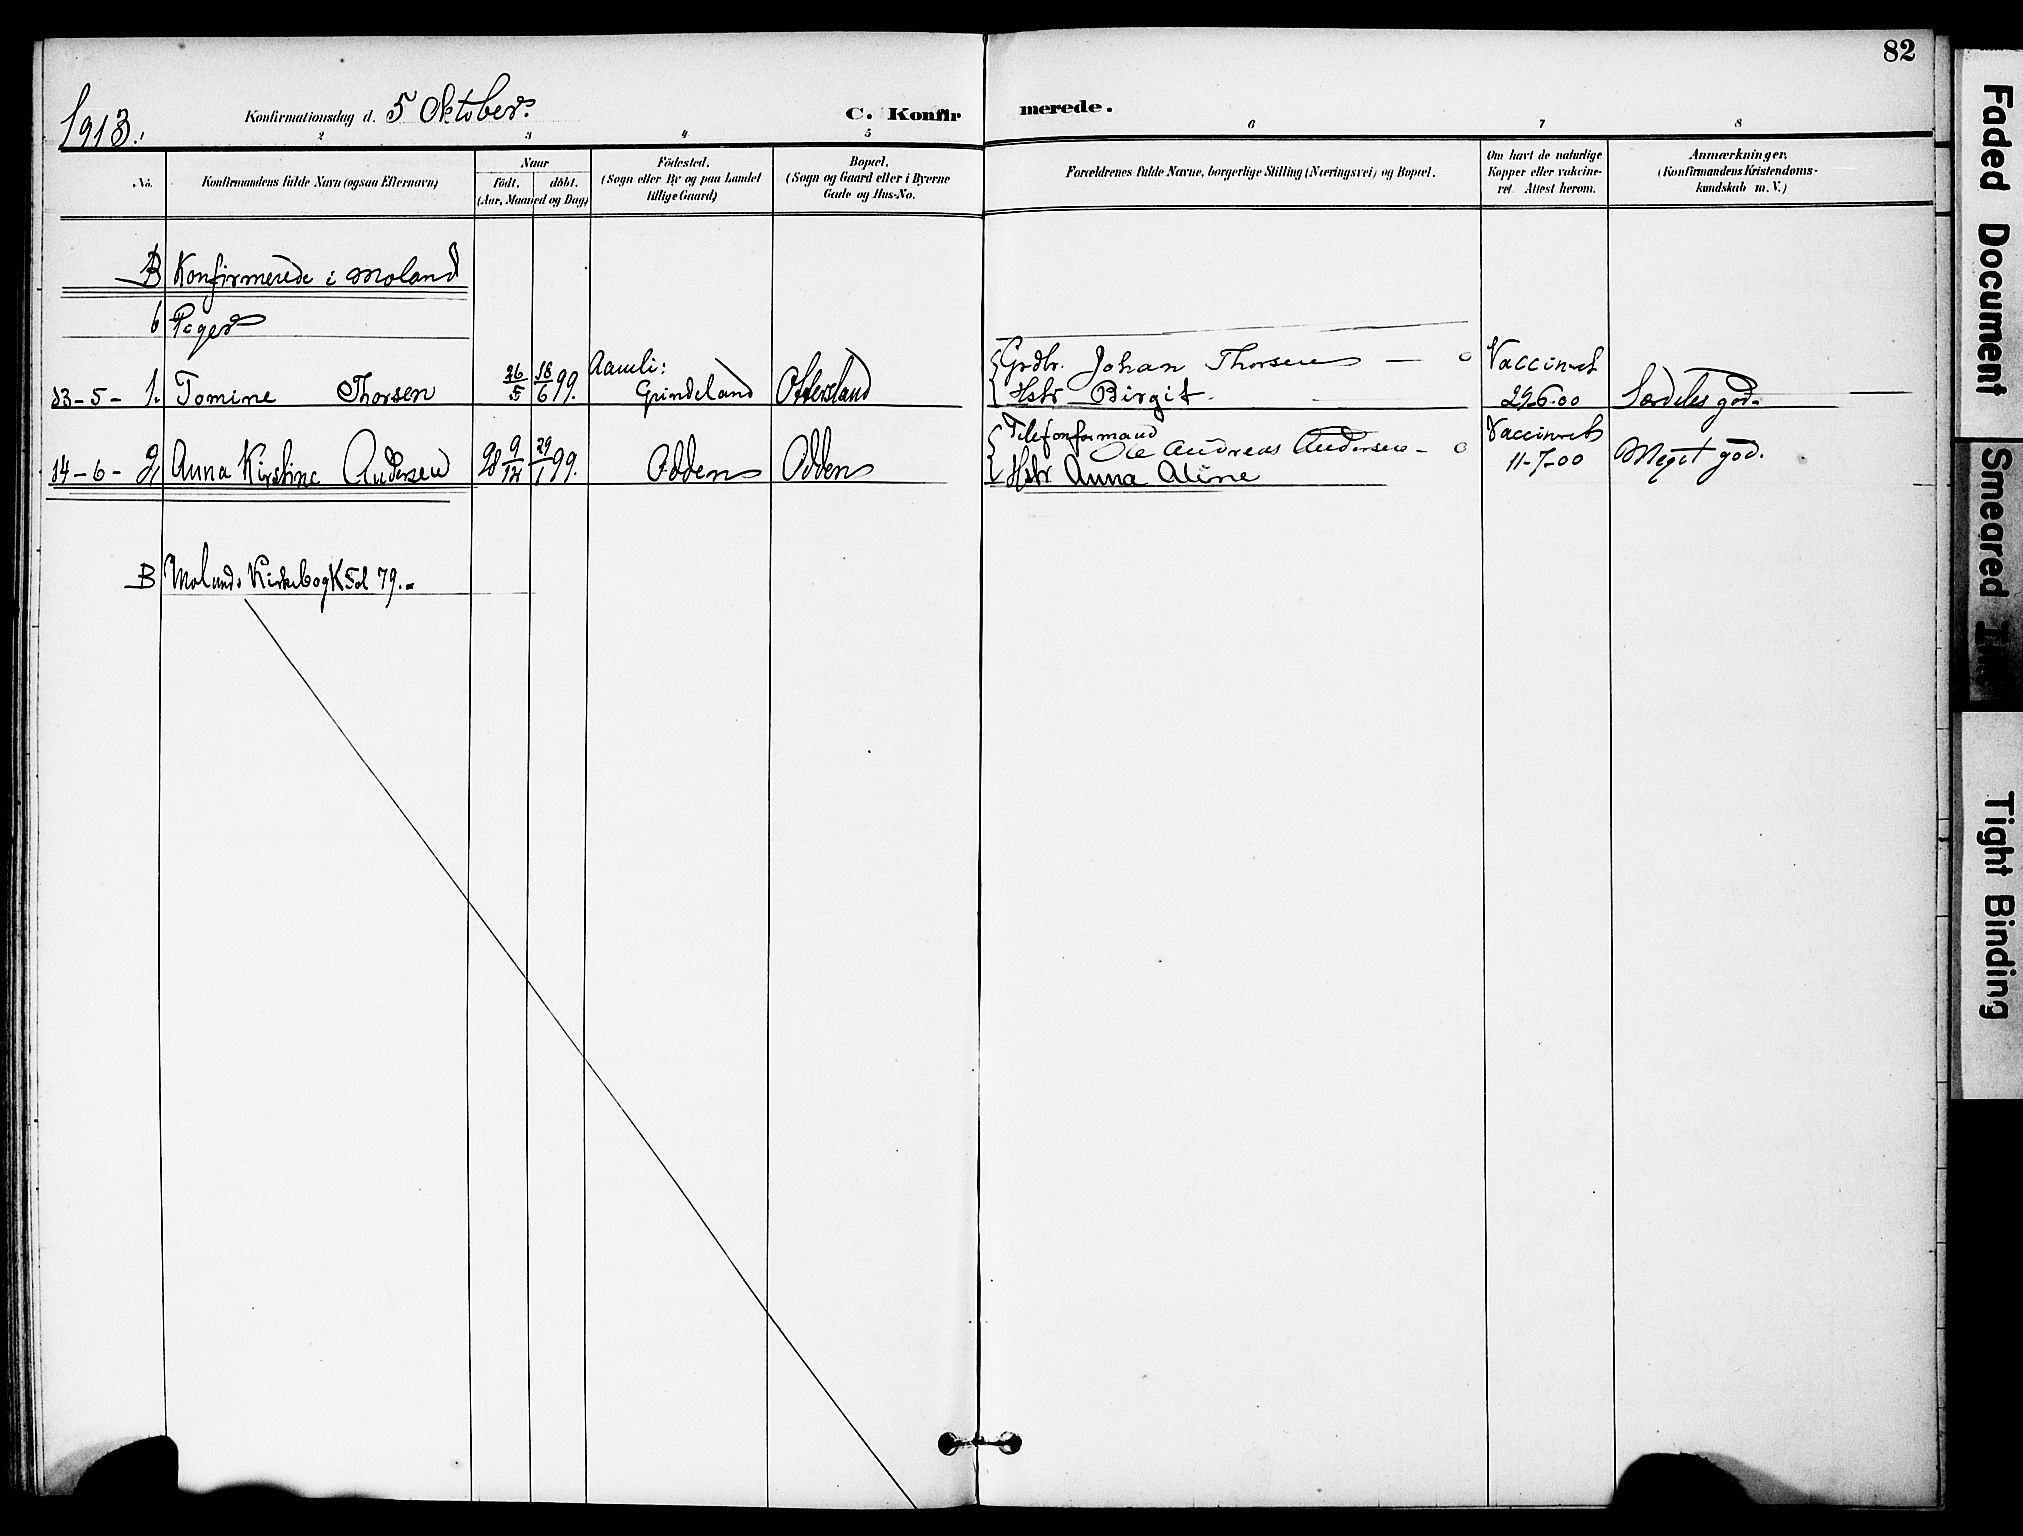 82
1913.
Konfirmationsdag d. 5 Oktober.
C. Konfir
merede.
2 3 4 5 6 7 8
No.
Konfirmandens fulde Navn (ogsaa Efternavn)
Naar
födt. döbt.
(Aar, Maaned og Dag)
Födested.
(Sogn eller By og paa Landet
tillige Gaard)
Bopæl.
(Sogn og Gaard eller i Byerne
Gade og Hus-No.
Forældrenes fulde Navne, borgerlige Stilling (Næringsvei) og Bopæl.
Om havt de naturlige
Kopper eller vakcine-
ret. Attest herom.
Anmærkninger.
(Konfirmandens Kristendoms-
kundskab m. V.)
B Konfirmerede i Moland
b Piger
13-5- 1. Tomine Thorsen 26/5 18/6 99. Aamli: Grindeland Ottersland { Grdbr. Johan Thorsen — o
Hstr Birgit.
Vaccineret
29-6-00
Særdeles god.
14-6- 2, Anna Kirstine Andersen 98 9/12 29/1 99. Odden Odden { Telefonformand
Ole Andreas Andersen - o
Hstr Anna Aline
Vaccineret
11-7-00
Meget god.
B Molands Kirkebog K Fol 79.-
Faded Document
Smeared Ink
Tight Binding